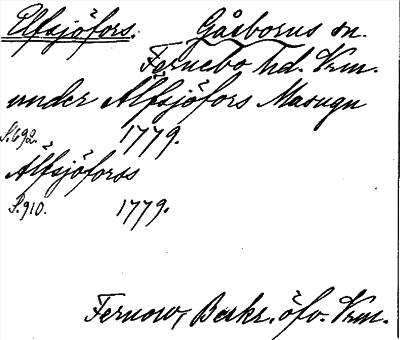 Elfsjöfors. Gåsborns sn.
Fernebo hd. Vrm.
under Älfsjöfors Masugn
S. 692. 1779.
Älfsjöforss
S. 910. 1779.
Fernow, Beskr. öfv. Vrm.